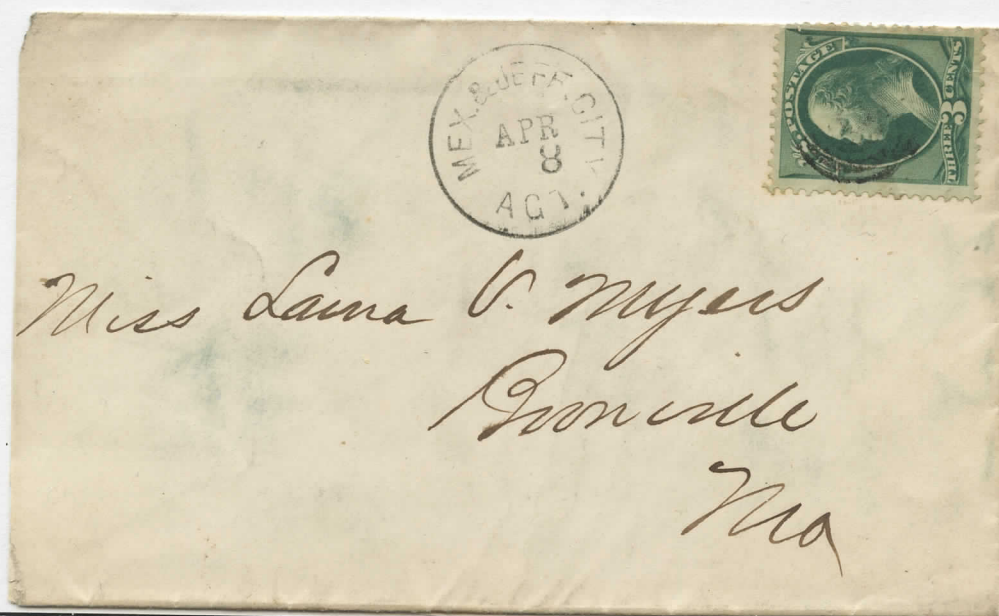 MEX. & JEFF. CITY
APR
8
AGT.
POSTAGE
THREE 3 CENTS
Miss Laura V. Myers
Boonville
Mo